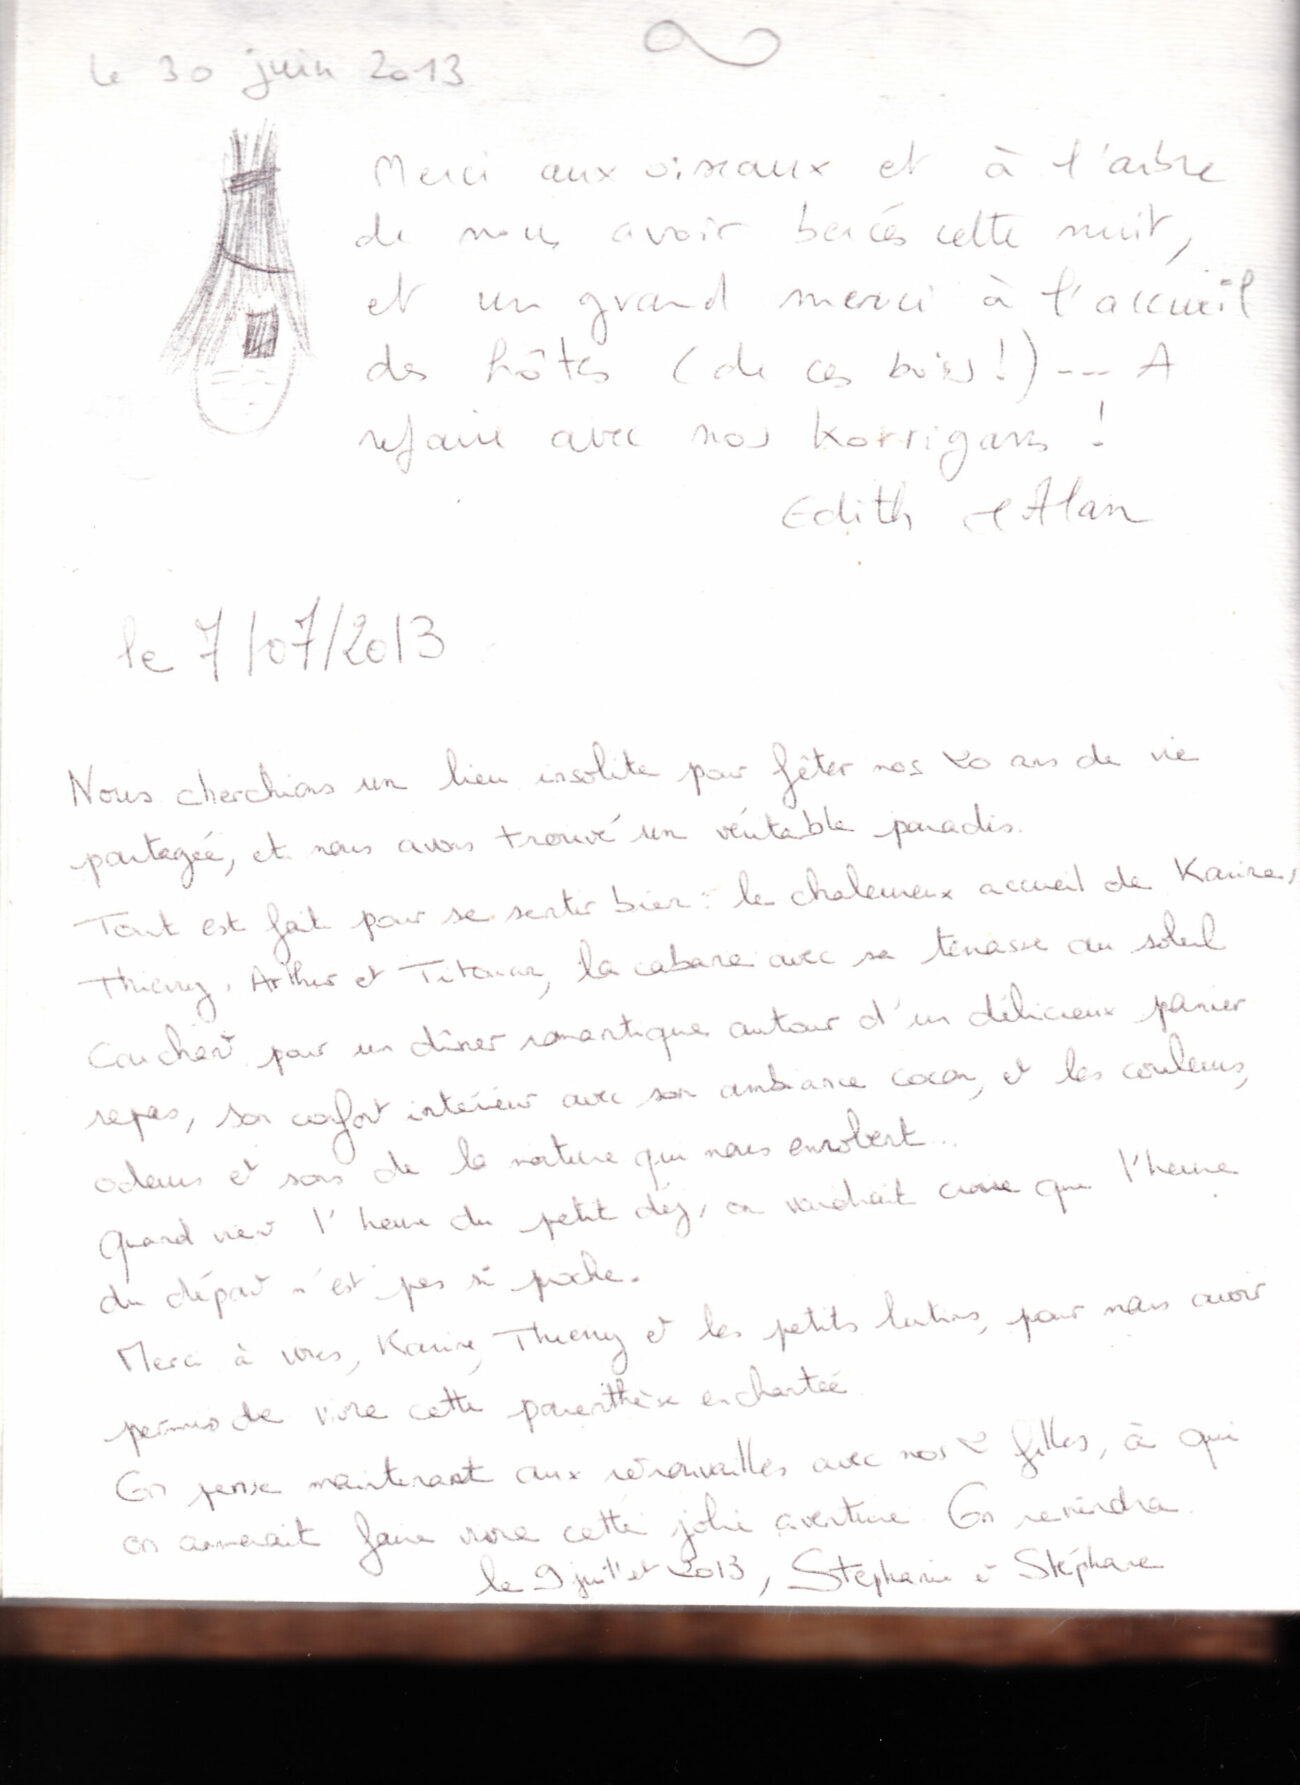 le 30 juin 2013
Merci aux oiseaux et à l'arbre
de nous avoir bercés cette nuit,
et un grand merci à l'accueil
des hôtes (de ces bois!) --- A
refaire avec nos Korrigans !
Edith et Alan
le 7/07/2013
Nous cherchions un lieu insolite pour fêter nos 20 ans de vie
partagée, et nous avons trouvé un véritable paradis.
Tout est fait pour se sentir bien : le chaleureux accueil de Karine,
Thierry, Arthur et Titouan, la cabane avec sa terrasse au soleil
couchant pour un dîner romantique autour d'un délicieux panier
repas, son confort intérieur avec son ambiance cocon, et les couleurs,
odeurs et sons de la nature qui nous enrobent...
Quand vient l'heure du petit déj, on voudrait croire que l'heure
du départ n'est pas si proche.
Merci à vous, Karine, Thierry et les petits lutins, pour nous avoir
permis de vivre cette parenthèse enchantée
On pense maintenant aux retrouvailles avec nos 2 filles, à qui
on aimerait faire vivre cette jolie aventure. On reviendra.
le 9 juillet 2013, Stéphanie et Stéphane